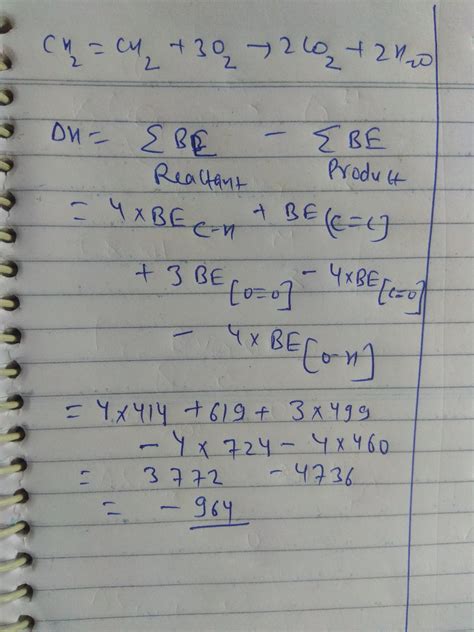 CH₂=CH₂ + 3O₂ → 2CO₂ + 2H₂O
DH = ΣBE - ΣBE
Reactant Product
= 4×BE C-H + BE(C=C)
+ 3 BE[O=O] - 4×BE[C=O]
- 4×BE[O-H]
= 4×414 + 619 + 3×499
- 4×724 - 4×460
= 3772 - 4736
= - 964